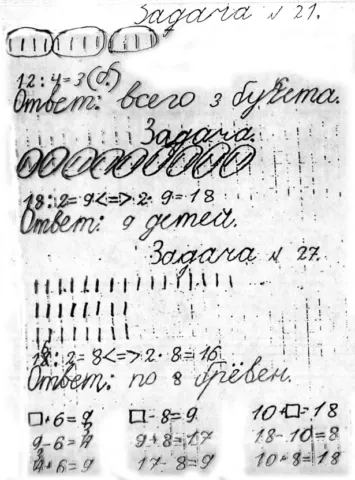 Задача № 21.
12 : 4 = 3 (б.)
Ответ: всего 3 букета.
Задача.
18 : 2 = 9 <=> 2 · 9 = 18
Ответ: 9 детей.
Задача № 27.
: 2 = 8 <=> 2 · 8 = 16
Ответ: по 8 брёвен.
□ + 6 = 9 □ - 8 = 9 10 + □ = 18
9 - 6 = 3 9 + 8 = 17 18 - 10 = 8
3 + 6 = 9 17 - 8 = 9 10 + 8 = 18